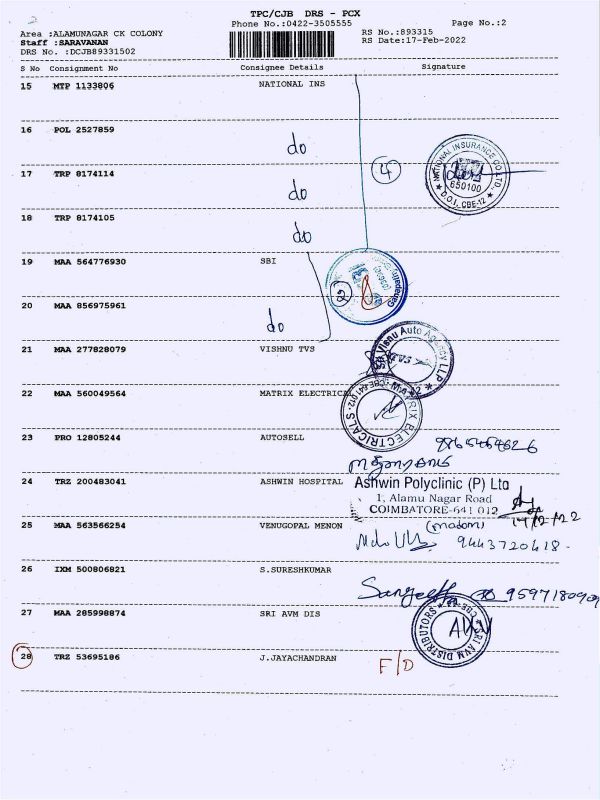 TPC/CJB DRS - PCX
Phone No.:0422-3505555 Page No.:2
Area :ALAMUNAGAR CK COLONY RS No.:893315
Staff :SARAVANAN RS Date:17-Feb-2022
DRS No. :DCJB89331502
S No Consignment No Consignee Details Signature
15 MTP 1133806 NATIONAL INS
16 POL 2527859 do
17 TRP 8174114 do 4
NATIONAL INSURANCE CO. LTD.
650100
D.O.I. CBE-12
18 TRP 8174105 do
19 MAA 564776930 SBI
2
20 MAA 856975961 do
21 MAA 277828079 VISHNU TVS
Sri Visnu Auto Agency LLP
TVS
22 MAA 560049564 MATRIX ELECTRICAL
MATRIX ELECTRICALS
CBE-641 012
23 PRO 12805244 AUTOSELL
24 TRZ 200483041 ASHWIN HOSPITAL Ashwin Polyclinic (P) Ltd
1, Alamu Nagar Road
COIMBATORE-641 012
(madam)
25 MAA 563566254 VENUGOPAL MENON 9443720418
26 IXM 500806821 S.SURESHKUMAR
Sangeetha 9597180909
27 MAA 285998874 SRI AVM DIS
SRI AVM DISTRIBUTORS
28 TRZ 53695186 J.JAYACHANDRAN F/D